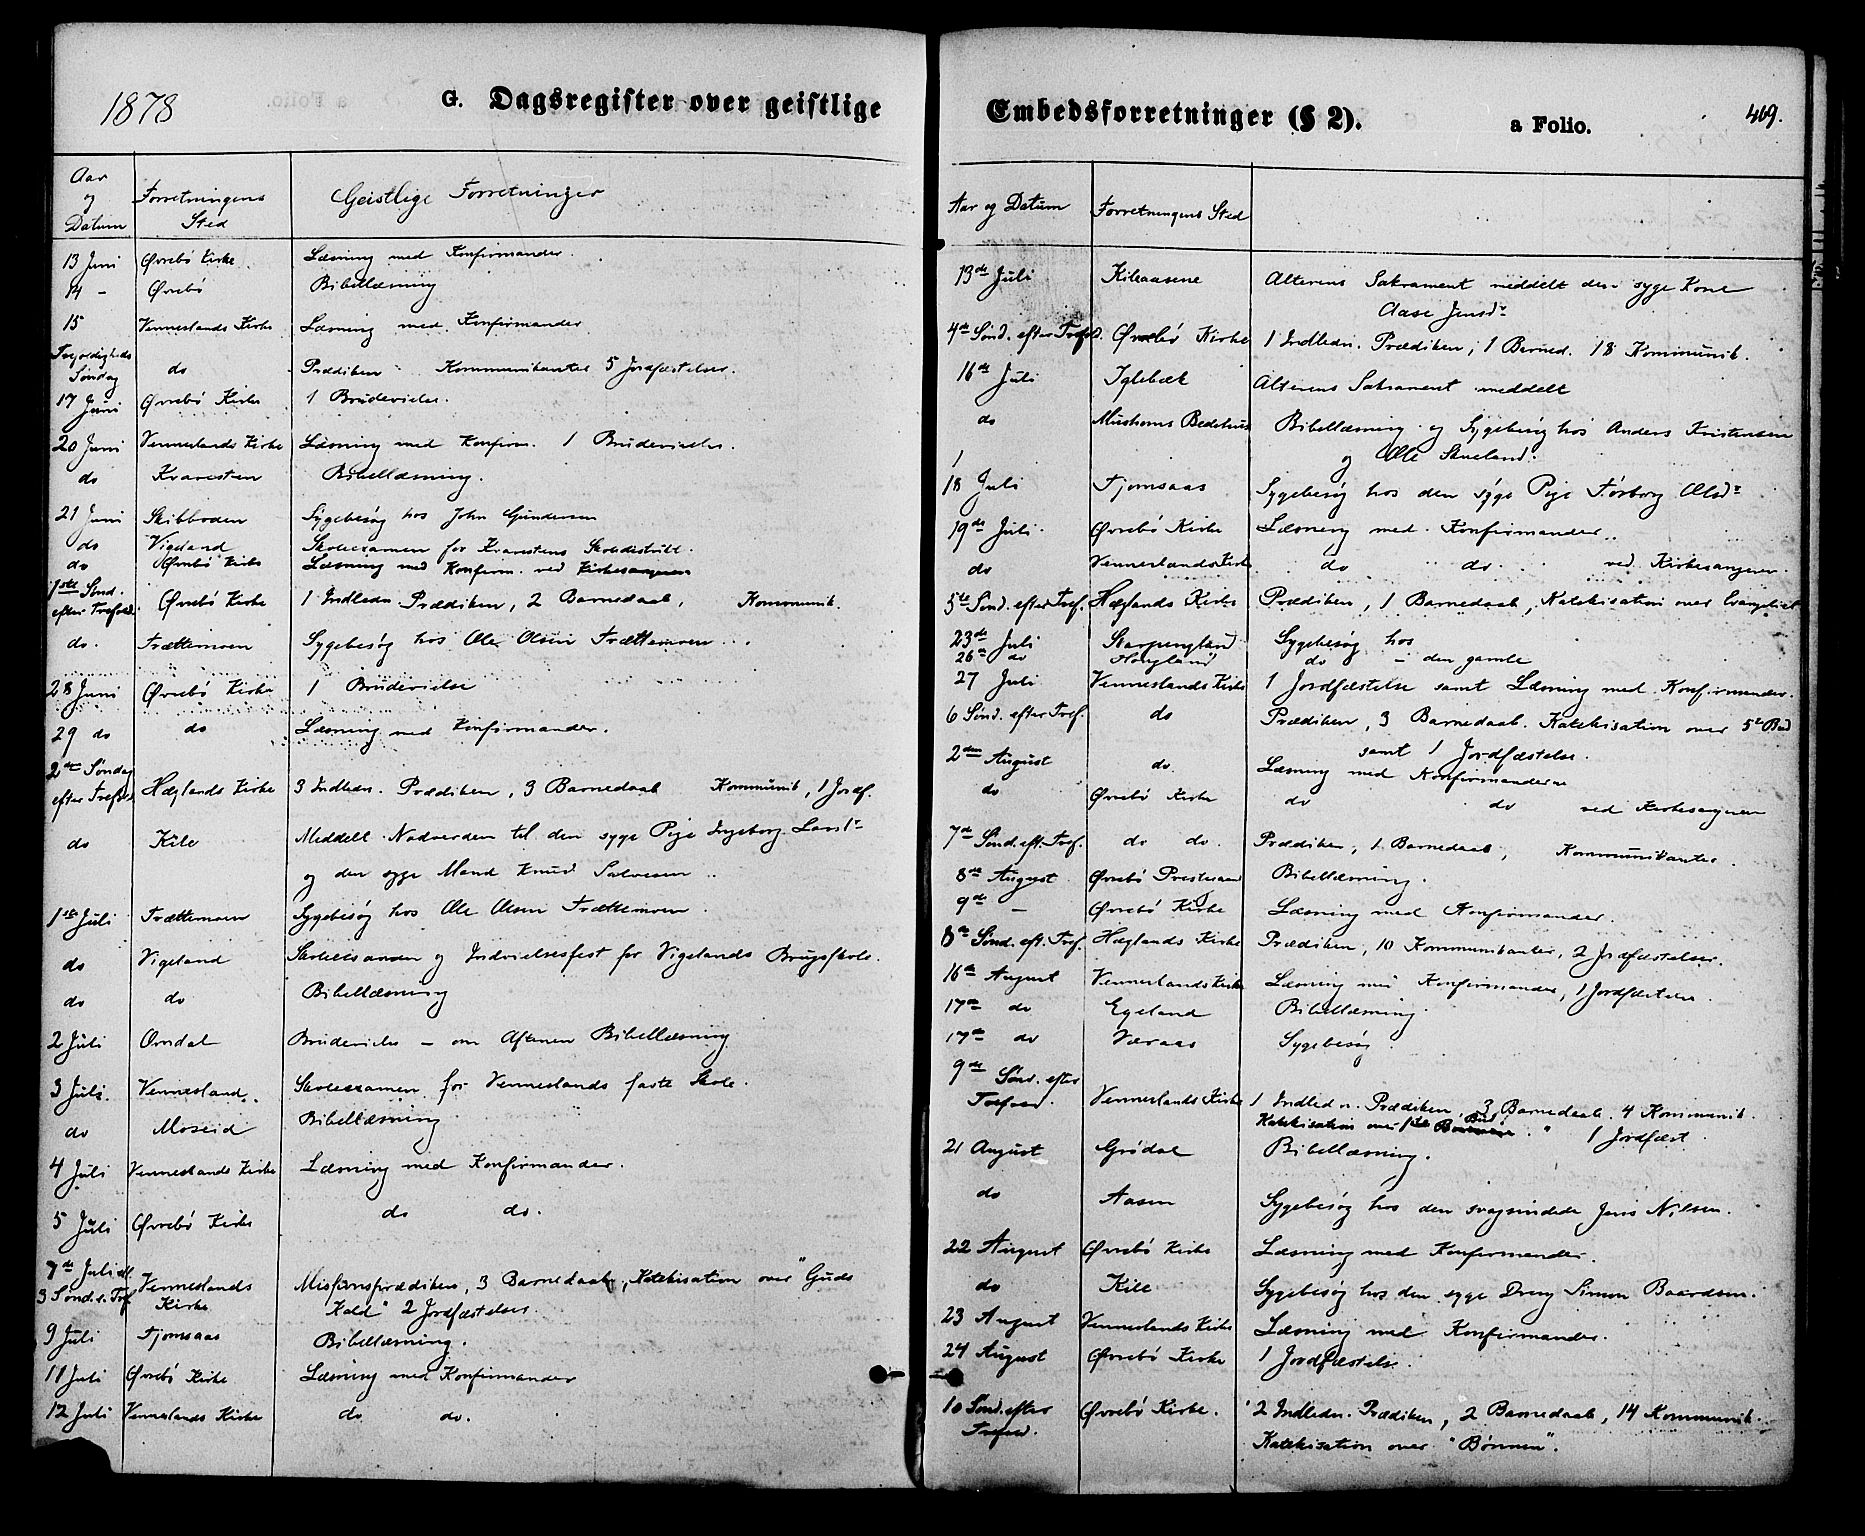 1878
G. Dagsregister over geistlige
Aar og Datum
Forretningens Sted
Geistlige Forretninger
13 Juni Øvrebø Kirke Læsning med Konfirmander.
14 - Øvrebø Bibellæsning
15 Vennerslands Kirke Læsning med Konfirmander
Trefoldigheds Søndag do Prædiken - Kommunikanter 5 Jordfæstelser.
17 Juni Øvrebø Kirke 1 Brudevielse.
20 Juni Vennerslands Kirke Læsning med Konfirm. 1 Brudevielse.
do Kvarsten Bibellæsning.
21 Juni Skibboden Sygebesøg hos John Gundersen
do Vigeland Skoleexamen for Kvarstens Skoledistrikt.
do Øvrebø Kirke Læsning med Konfirm. ved Kirkesangeren
1ste Sønd. efter Trefold. Øvrebø Kirke 1 Indledn. Prædiken, 2 Barnedaab, Kommunik.
do. Trættemoen Sygebesøg hos Ole Olsen Trættemoen
28 Juni Øvrebø Kirke 1 Brudevielse
29 do do Læsning med Konfirmander.
2den Søndag efter Trefold. Hæglands Kirke 3 Indledn. Prædiken, 3 Barnedaab Kommunik, 1 Jordf.
do Kile Meddelt Nadverden til den syge Pige Ingeborg
og den syge Mand Knud Salvesen
1ste Juli Trættemoen Sygebesøg hos Ole Olsen Trættemoen.
do Vigeland Skoleexamen og Indvielsesfest for Vigelands Brugsskole.
do do Bibellæsning
2 Juli Omdal Brudevielse - om Aftenen Bibellæsning
3 Juli. Vennesland Skoleexamen for Venneslands faste Skole.
do Moseid Bibellæsning
4 Juli Venneslands Kirke Læsning med Konfirmander.
5 Juli Øvrebø Kirke do do.
7de Juli el. 3 Sønd. e. Tref Venneslands Kirke Misjonsprædiken, 3 Barnedaab, Katekisation over "Guds
Kald" 2 Jordfæstelser.
9 Juli Fjomsaas Bibellæsning.
11 Juli Øvrebø Kirke Læsning med Konfirmander
12 Juli Venneslands Kirke do do.
Embedsforretninger (§ 2).
a Folio.
469.
Aar og Datum Forretningens Sted
13de Juli Kileaasene Alterens Sakrament meddelt den syge Kone
Aase Jensdr
4de Sønd. efter Trefold. Øvrebø Kirke 1 Indledn. Prædiken, 1 Barned. 18 Kommunik.
16de Juli Iglebæk Alterens Sakrament meddelt
do Mushoms Bedehus Bibellæsning og Sygebesøg hos Anders Kristensen
og Ole Skueland.
18 Juli Fjomsaas Sygebesøg hos den syge Pige Torborg Olsdr
19de Juli Øvrebø Kirke Læsning med Konfirmander
do Venneslands Kirke do do. ved Kirkesangeren
5te Sønd. efter Tref. Hæglands Kirke Prædiken, 1 Barnedaab, Katekisation over Evangeliet
23de Juli Skarpengland Sygebesøg hos
26de do Hougland do - den gamle
27 Juli Venneslands Kirke 1 Jordfæstelse samt Læsning med Konfirmander.
6 Sønd. efter Tref. do Prædiken, 3 Barnedaab. Katekisation over 5te Bud
samt 1 Jordfæstelse.
2den August do. Læsning med Konfirmanderne
do Øvrebø Kirke do do ved Kirkesangeren
7de Sønd. eft. Tref. do do. Prædiken, 1 Barnedaab, Kommunikanter.
8de August Øvrebø Prestegaard Bibellæsning.
9de - Øvrebø Kirke Læsning med Konfirmander.
8de Sønd. eft. Tref. Hæglands Kirke Prædiken, 10 Kommunikanter, 2 Jordfæstelser.
16de August Venneslands Kirke Læsning med Konfirmander, 1 Jordfæstelse.
17de do Egeland Bibellæsning.
17de do Væraas Sygebesøg.
9de Sønd. efter Trefold. Venneslands Kirke 1 Indledn. Prædiken, 3 Barnedaab. 4 Kommunik.
Katekisation over 1ste Bud 1 Jordfæst.
21 August Grødal Bibellæsning.
do Aasen Sygebesøg hos den svagsindede Jens Nilsen.
22 August Øvrebø Kirke Læsning med Konfirmander.
do Kile Sygebesøg hos den syge Dreng Simon Baardsen.
23 August Venneslands Kirke Læsning med Konfirmander.
24 August Øvrebø Kirke 1 Jordfæstelse.
10 Sønd. efter Trefold. Øvrebø Kirke. 2 Indledn. Prædiken, 2 Barnedaab, 14 Kommunik.
Katekisation over "Bønnen".